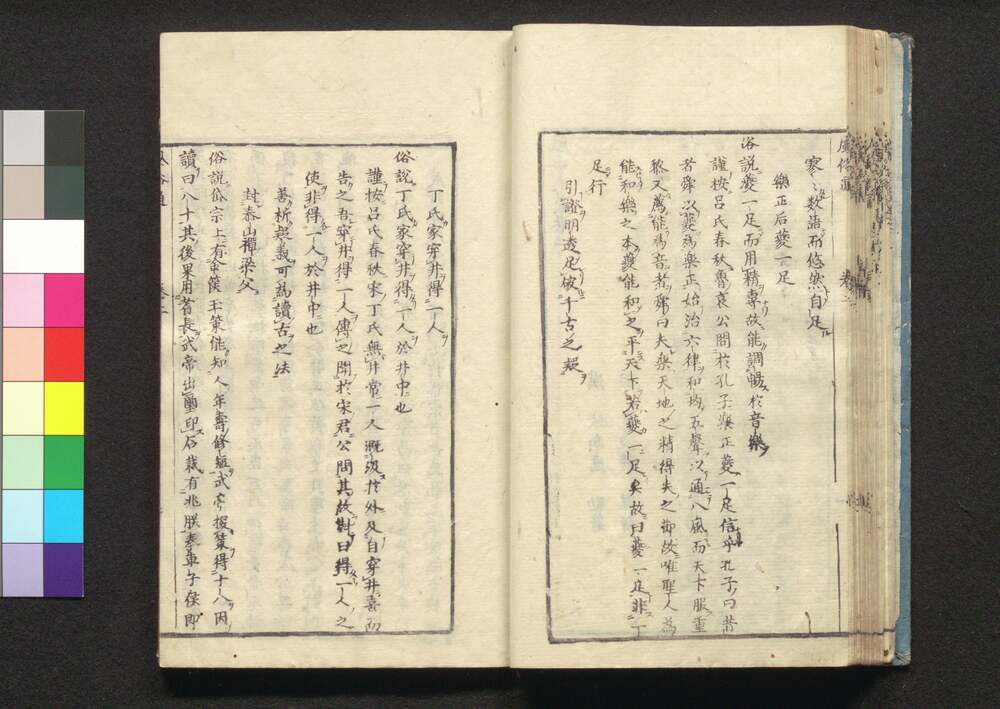 風俗通 卷二
寥〻數語而悠然自足
樂正后夔一足
俗説夔一足而用精專故能調暢於音樂
謹按呂氏春秋魯哀公問於孔子樂正夔一足信乎孔子曰昔
者舜以夔爲樂正始治六律和均五聲以通八風而天下服重
黎又薦能爲音者舜曰夫樂天地之精得失之節故唯聖人爲
能和樂之本夔能和之平天下若夔一足矣故曰夔一足非一
足行
引證明透足破千古之疑
丁氏家穿井得一人
俗説丁氏家穿井得一人於井中也
謹按呂氏春秋宋丁氏無井常一人溉汲於外及自穿井喜而
告之吾穿井得一人傳之聞於宋君公問其故對曰得一人之
使非得一人於井中也
善析疑義可爲讀古之法
封泰山禪梁父
俗説岱宗上有金篋玉策能知人年壽修短武帝探策得十八因
讀曰八十其後果用耆長武帝出璽印石裁有兆朕奉車子侯即
風俗通 卷二